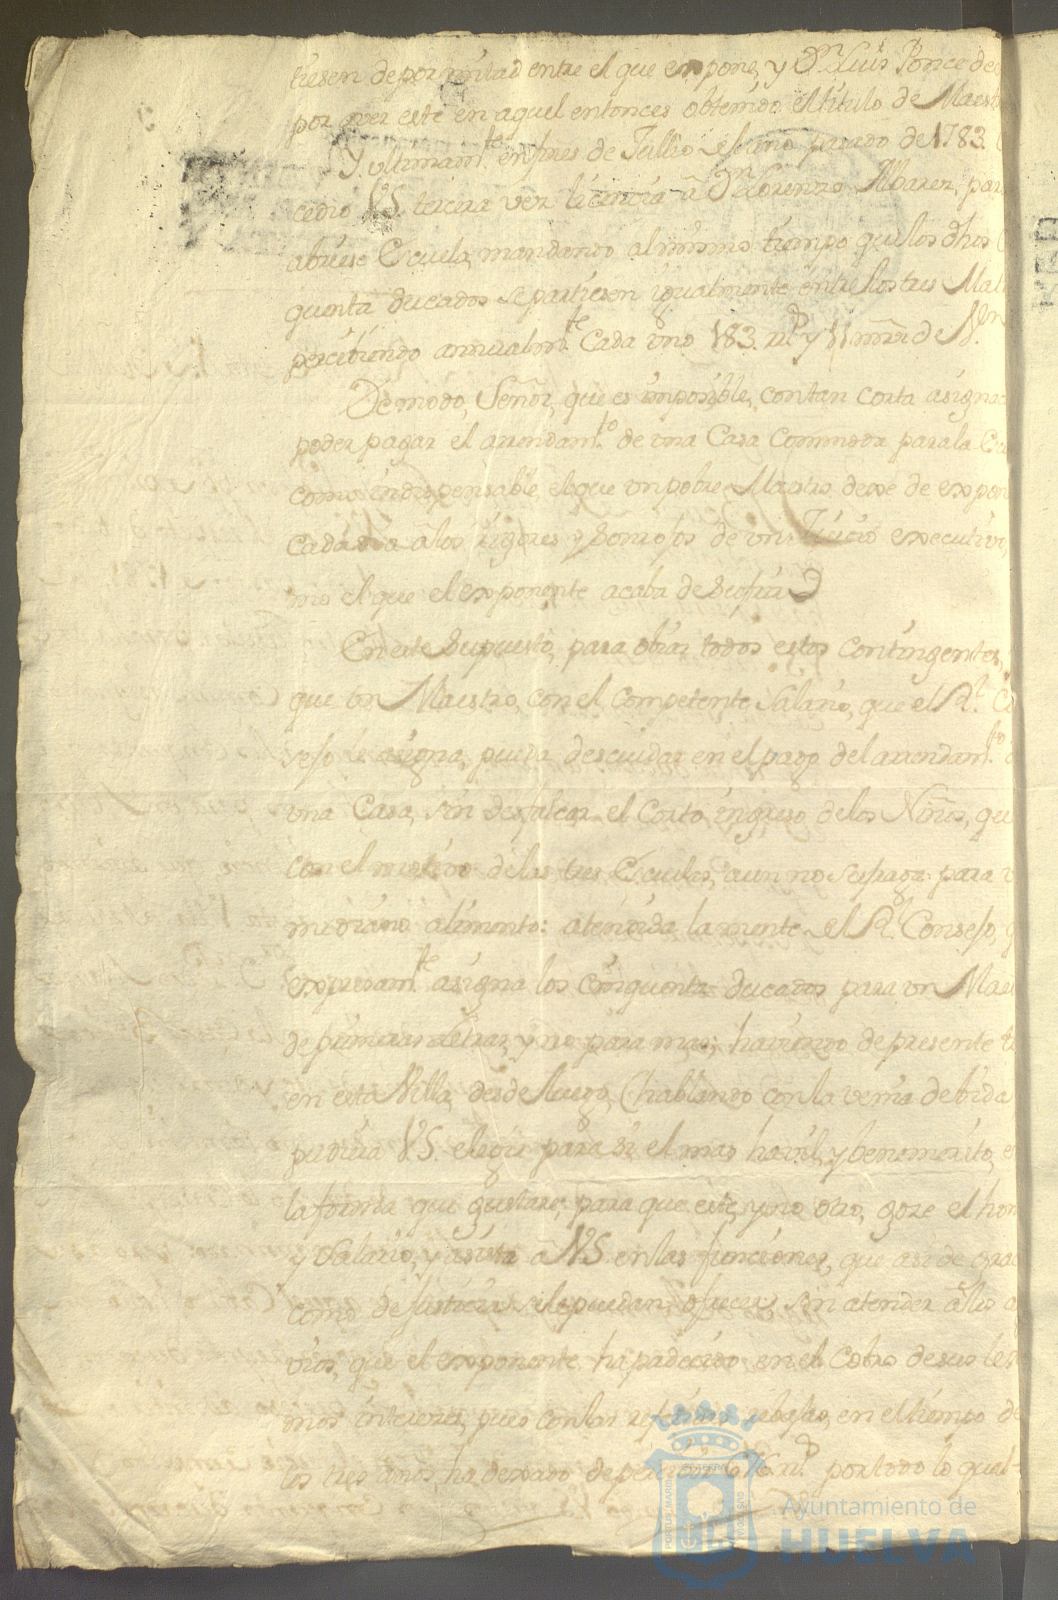 tiesen de por mitad entre el que expone, y Dn. Luis Ponce de
por ver este en aquel entonces obtenido el titulo de Maest
Y ultimamte. en mes de Jullio el año pasado de 1783.
cedio VS. tercera vez licencia â Dn. Lorenzo Alvarez, par
abriese Escuela, mandando al mismo tiempo que los dhos
quenta ducados se partiesen igualmente entre los tres Ma
percibiendo annualmte. Cada uno 183. rs. y 11 mrs. de Vn.
De modo, Señor, que es imposible, con tan corta asigna
poder pagar el arrendamto. de una Casa Commoda para la
como indispensable, el que un pobre Maestro dexe de expon
cada dia â los rigores y de un Juicio executivo,
mo el que el exponente acaba de sufrir
En este Supuesto, para obiar todos estos contingentes,
que un Maestro, con el competente Salario, que el Rl. Co
sejo le asigna, pueda descuidar en el pago del arrendamto.
una Casa, sin desfalcar el corto ingreso de los Niños, qu
con el motivo de las tres Escuelas, aun no para
mi diario alimento: atendida la mente del Rl. Consejo,
expresamte. asigna los cinquenta ducados para un Mae
de primeras letras, y no para mas; haviendo de presente
en esta Villa, desde luego, (hablando con la venia debida
podria VS. elegir para si el mas havil, y benemerito, e
la forma que gustare, para que este, y no otro, goze el hon
y Salario, y asista â VS. en las funciones, que asi de gra
como de Justicia se le puedan ofrecer, sin atender â los a
vios, que el exponente ha padecido en el Cobro de sus le
mos intereses, pues con las referidas rebajas, en el tiempo de
os tres años, ha dexado de percibir rs. por todo lo qual
Ayuntamiento de
HUELVA